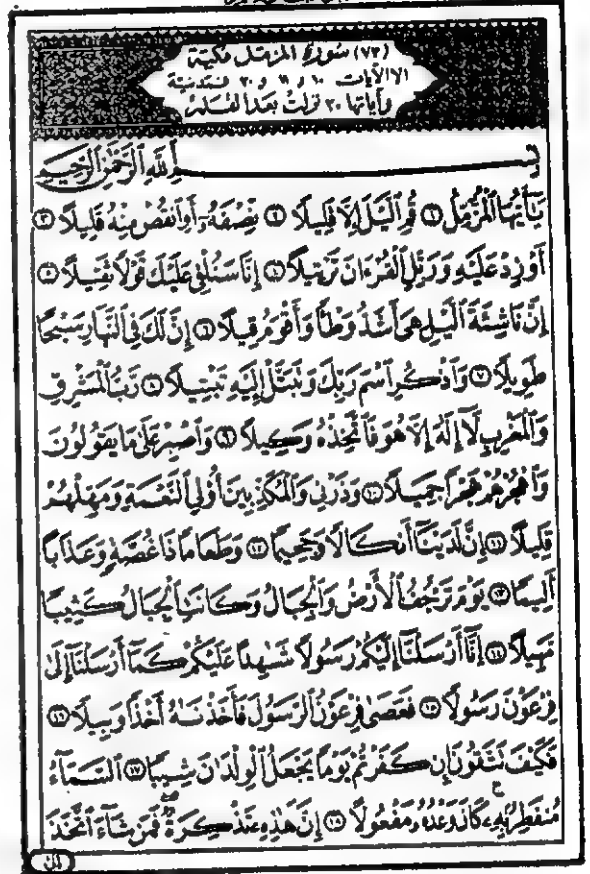 (٧٣) سورة المزمل مكية
إلا الآيات ١٠ و ١١ و ٢٠ فمدنية
وآياتها ٢٠ نزلت بعد القلم
بِسْمِ ٱللَّهِ ٱلرَّحْمَٰنِ ٱلرَّحِيمِ
يَٰٓأَيُّهَا ٱلْمُزَّمِّلُ ١ قُمِ ٱلَّيْلَ إِلَّا قَلِيلًا ٢ نِّصْفَهُۥٓ أَوِ ٱنقُصْ مِنْهُ قَلِيلًا ٣
أَوْ زِدْ عَلَيْهِ وَرَتِّلِ ٱلْقُرْءَانَ تَرْتِيلًا ٤ إِنَّا سَنُلْقِى عَلَيْكَ قَوْلًا ثَقِيلًا ٥
إِنَّ نَاشِئَةَ ٱلَّيْلِ هِىَ أَشَدُّ وَطْـًٔا وَأَقْوَمُ قِيلًا ٦ إِنَّ لَكَ فِى ٱلنَّهَارِ سَبْحًا
طَوِيلًا ٧ وَٱذْكُرِ ٱسْمَ رَبِّكَ وَتَبَتَّلْ إِلَيْهِ تَبْتِيلًا ٨ رَّبُّ ٱلْمَشْرِقِ
وَٱلْمَغْرِبِ لَآ إِلَٰهَ إِلَّا هُوَ فَٱتَّخِذْهُ وَكِيلًا ٩ وَٱصْبِرْ عَلَىٰ مَا يَقُولُونَ
وَٱهْجُرْهُمْ هَجْرًا جَمِيلًا ١٠ وَذَرْنِى وَٱلْمُكَذِّبِينَ أُو۟لِى ٱلنَّعْمَةِ وَمَهِّلْهُمْ
قَلِيلًا ١١ إِنَّ لَدَيْنَآ أَنكَالًا وَجَحِيمًا ١٢ وَطَعَامًا ذَا غُصَّةٍ وَعَذَابًا
أَلِيمًا ١٣ يَوْمَ تَرْجُفُ ٱلْأَرْضُ وَٱلْجِبَالُ وَكَانَتِ ٱلْجِبَالُ كَثِيبًا
مَّهِيلًا ١٤ إِنَّآ أَرْسَلْنَآ إِلَيْكُمْ رَسُولًا شَٰهِدًا عَلَيْكُمْ كَمَآ أَرْسَلْنَآ إِلَىٰ
فِرْعَوْنَ رَسُولًا ١٥ فَعَصَىٰ فِرْعَوْنُ ٱلرَّسُولَ فَأَخَذْنَٰهُ أَخْذًا وَبِيلًا ١٦
فَكَيْفَ تَتَّقُونَ إِن كَفَرْتُمْ يَوْمًا يَجْعَلُ ٱلْوِلْدَٰنَ شِيبًا ١٧ ٱلسَّمَآءُ
مُنفَطِرٌۢ بِهِۦ كَانَ وَعْدُهُۥ مَفْعُولًا ١٨ إِنَّ هَٰذِهِۦ تَذْكِرَةٌ فَمَن شَآءَ ٱتَّخَذَ